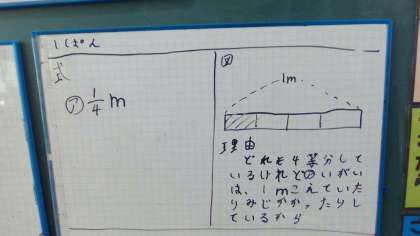 1ぱん
式
㋐ 1/4 m
図
1m
理由
どれも4等分して
いるけれど㋐いがい
は、1mこえていた
りみじかかったりし
ているから